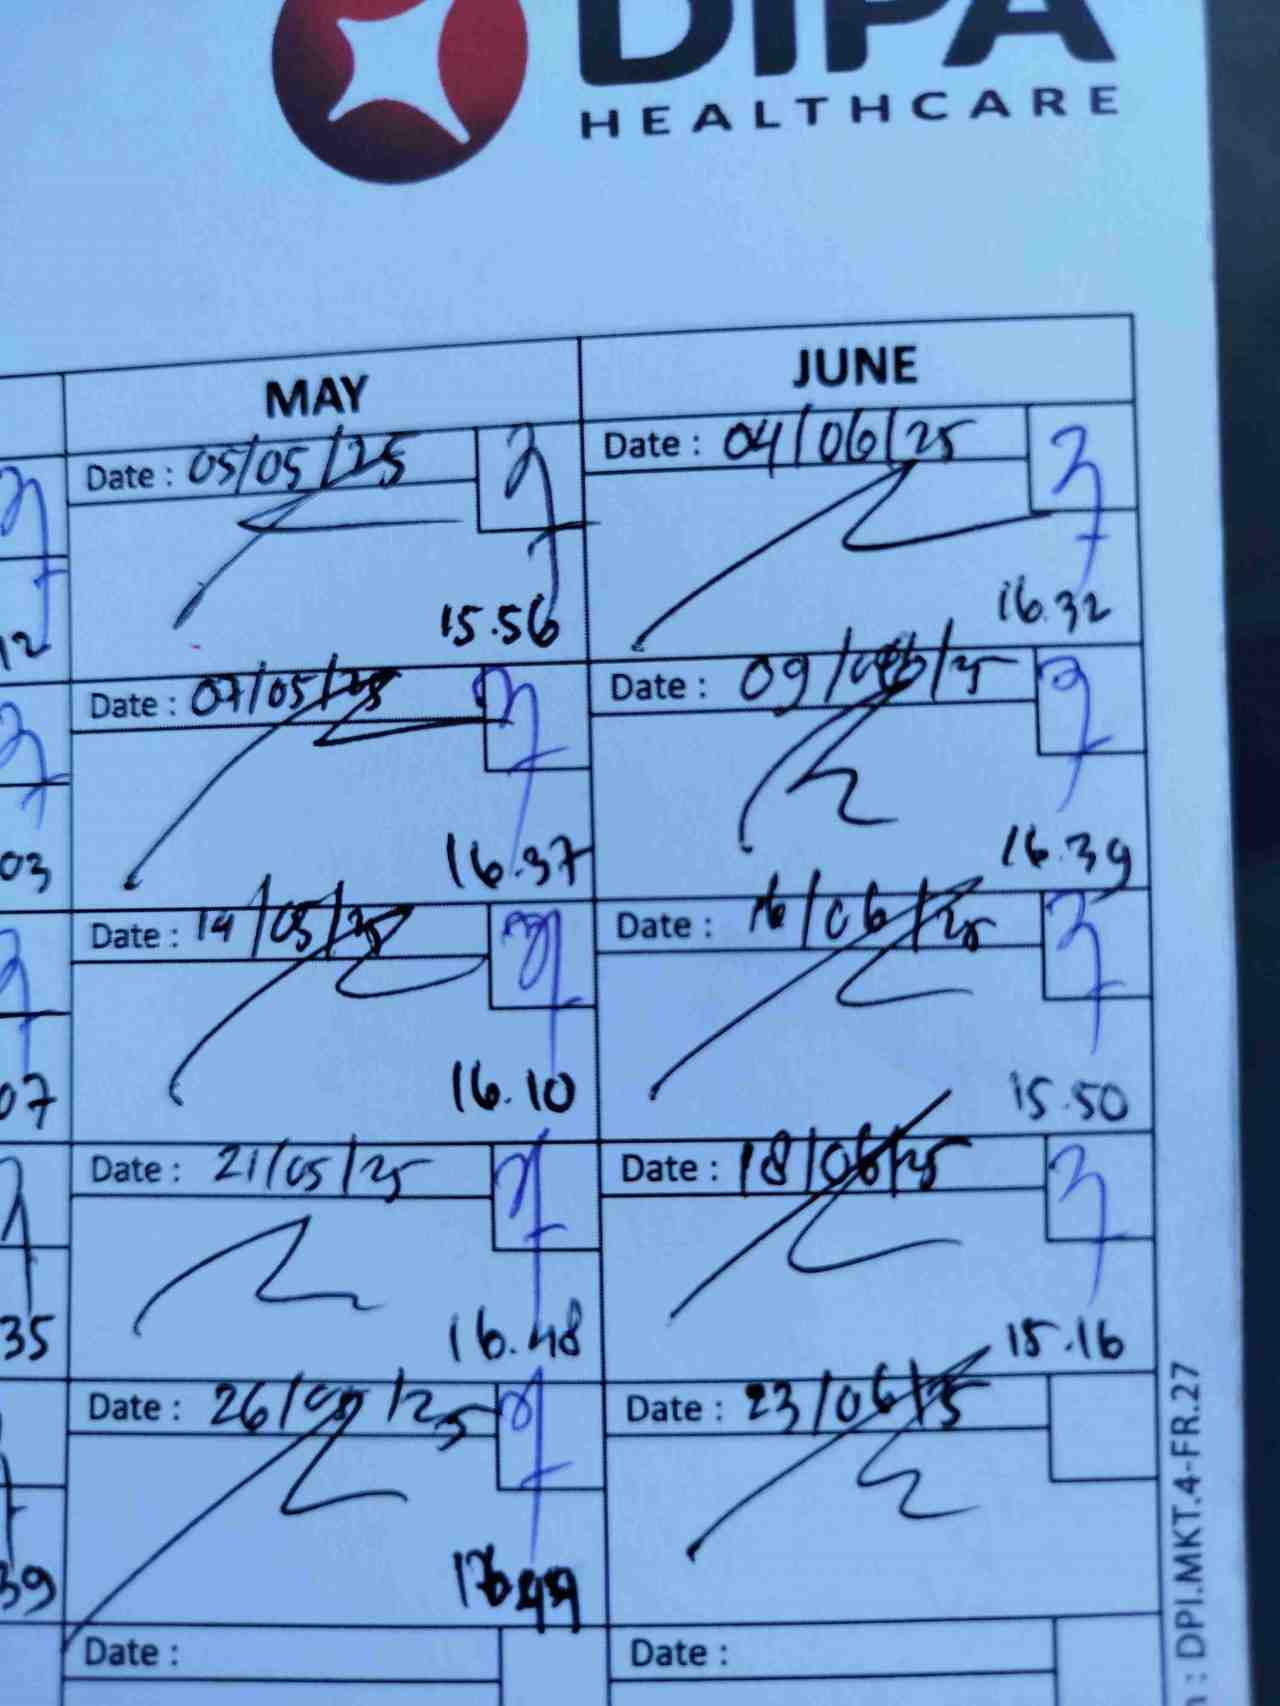 DIPA
HEALTHCARE
MAY JUNE
Date : 05/05/25 Date : 04/06/25
12 15.56 16.32
Date : 07/05/25 Date : 09/06/25
03 16.37 16.39
Date : 14/05/25 Date : 16/06/25
07 16.10 15.50
Date : 21/05/25 Date : 18/06/25
35 16.48 15.16
Date : 26/05/25 Date : 23/06/25
39
Date : Date :
: DPI.MKT.4-FR.27